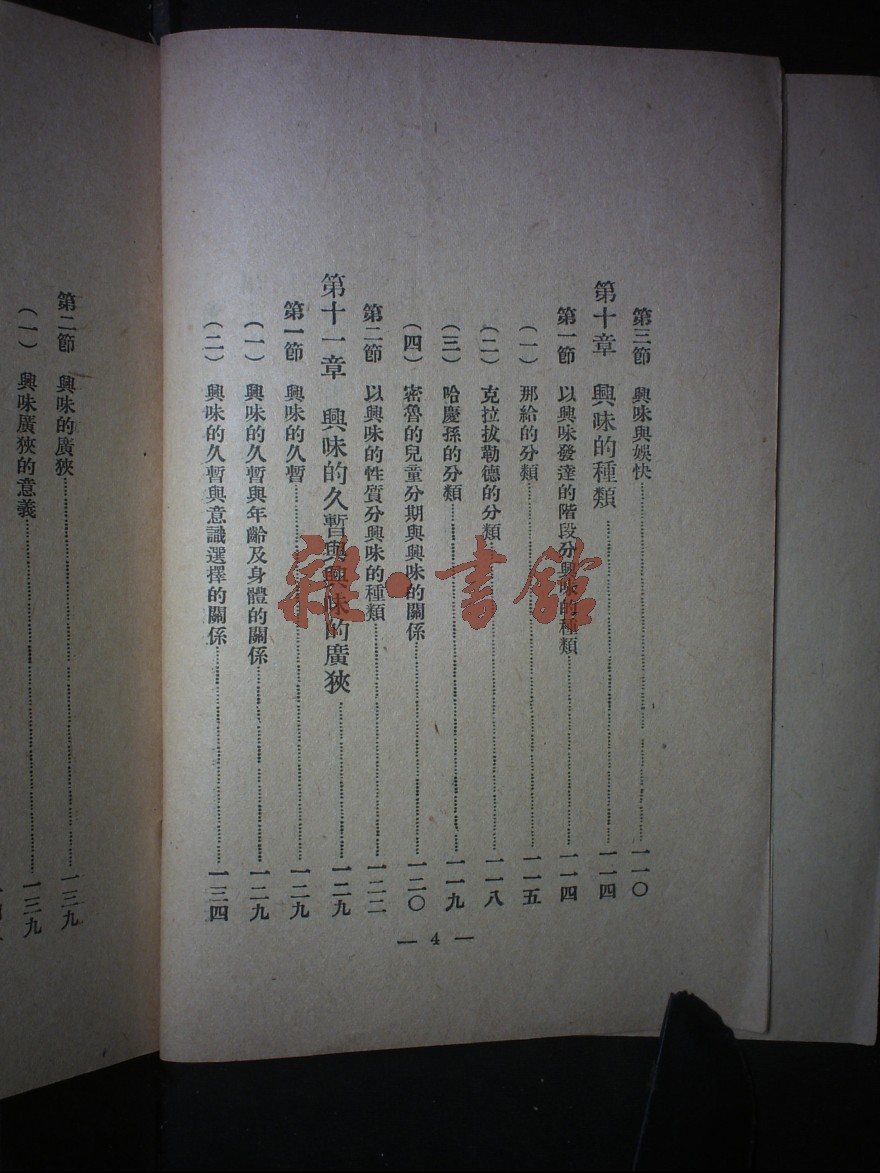 第三節 興味與娛快……一一〇
第十章 興味的種類……一一四
第一節 以興味發達的階段分興味的種類……一一四
(一) 那給的分類……一一五
(二) 克拉拔勒德的分類……一一八
(三) 哈慶孫的分類……一一九
(四) 密魯的兒童分期與興味的關係……一二〇
第二節 以興味的性質分興味的種類……一二二
第十一章 興味的久暫與興味的廣狹……一二九
第一節 興味的久暫……一二九
(一) 興味的久暫與年齡及身體的關係……一二九
(二) 興味的久暫與意識選擇的關係……一三四
— 4 —
第二節 興味的廣狹……一三九
(一) 興味廣狹的意義……一三九
雜·書館